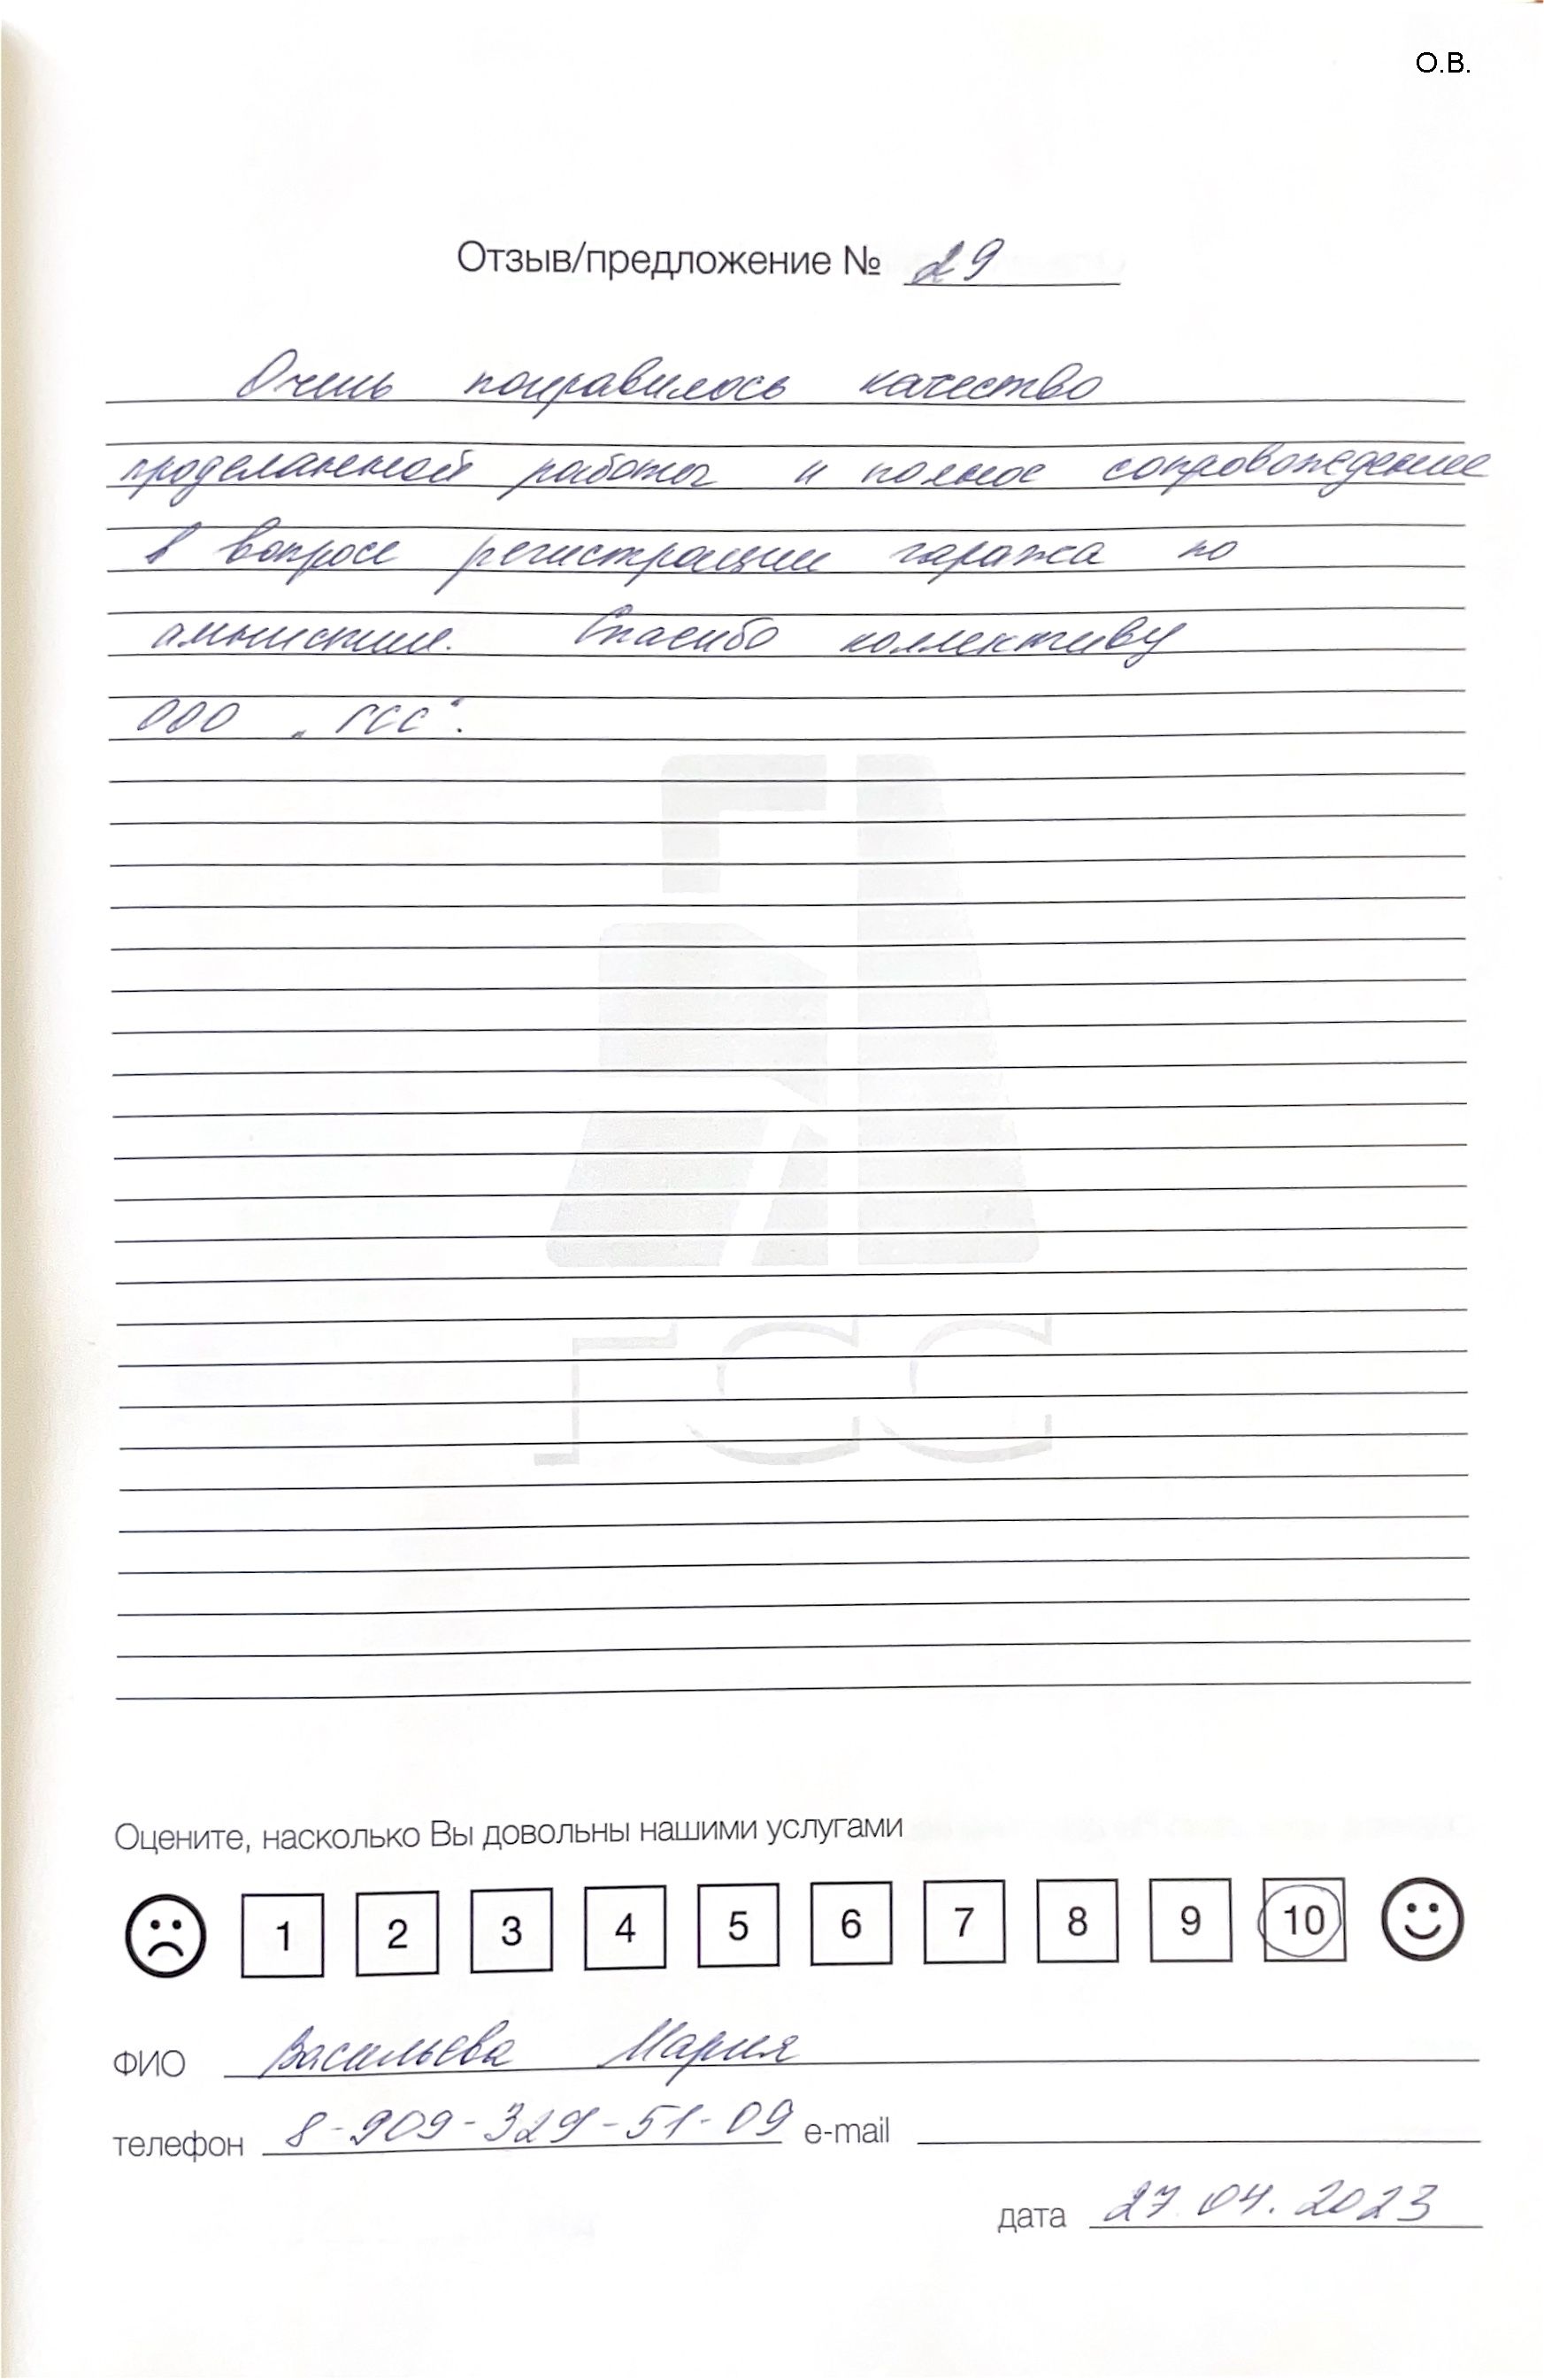 О.В.
Отзыв/предложение № 29
Очень понравилось качество
проделанной работы и полное сопровождение
в вопросе регистрации гаража по
амнистии. Спасибо коллективу
ООО „ГСС“.
ГСС
Оцените, насколько Вы довольны нашими услугами
1 2 3 4 5 6 7 8 9 10
ФИО Васильева Мария
телефон 8-909-329-51-09 e-mail
дата 27.04.2023